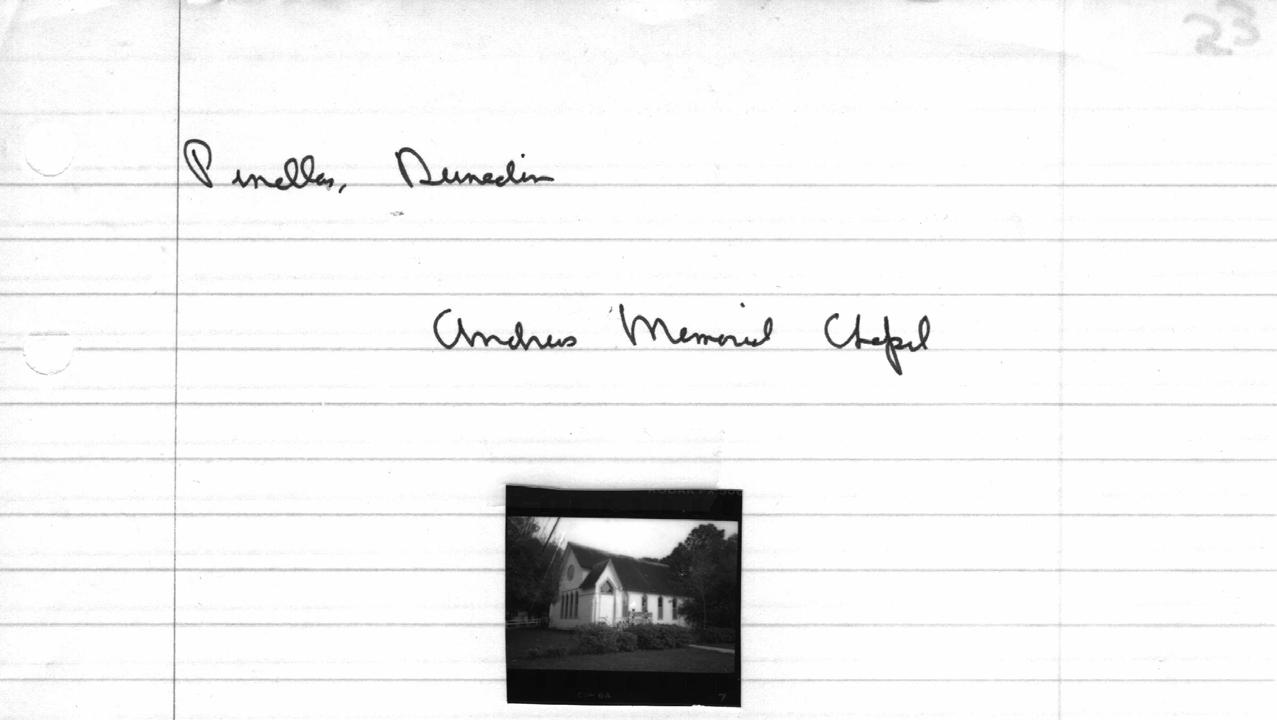 23
Pinellas, Dunedin
Andrews Memorial Chapel
KODAK PX 
7